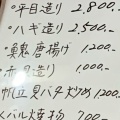 ◦平目造り 2,800.-
◦ハギ造り 2,500.-
唐揚げ 1,200.-
造り 1,000.-
帆立貝バター炒め 1,200.-
バル焼物 700.-